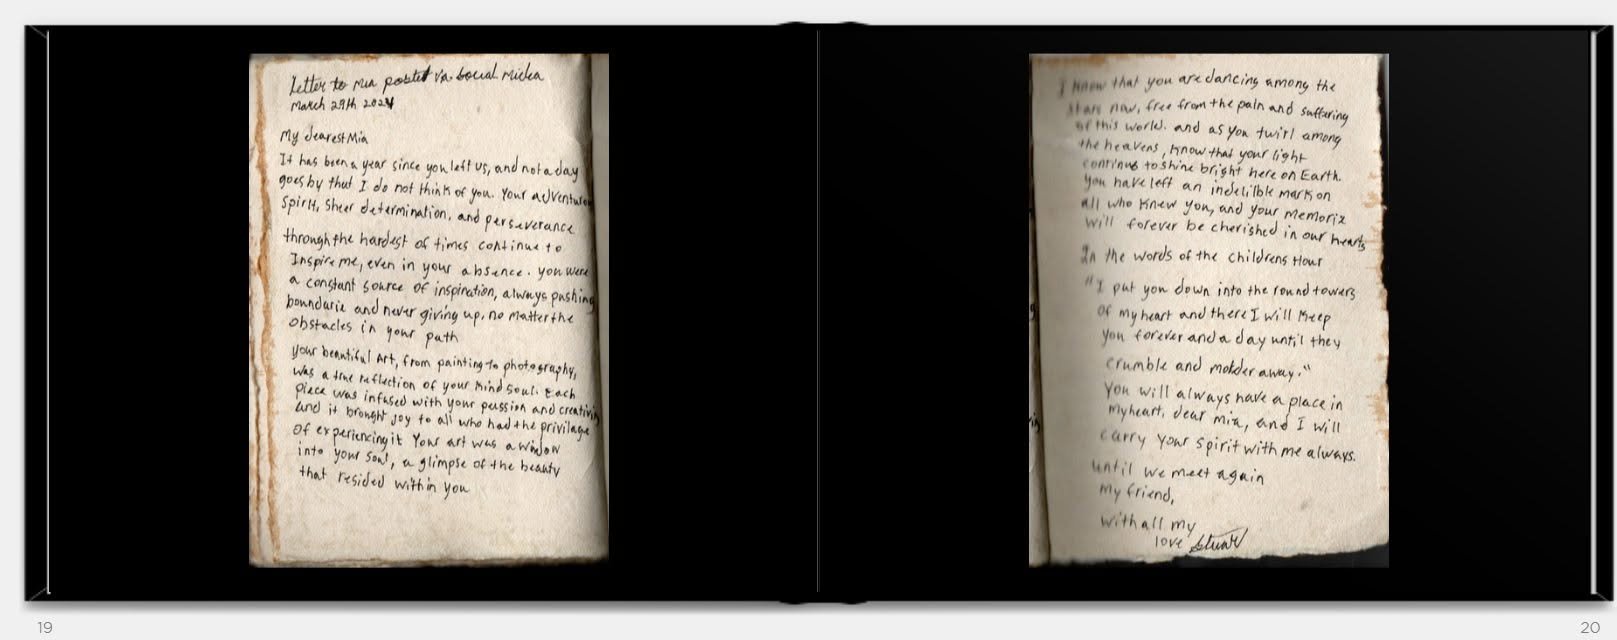 Letter to mia posted via Social Midea
march 29th 2024
My dearest Mia
It has been a year since you left us, and not a day
goes by that I do not think of you. Your adventurou
Spirit, sheer determination, and perseverance
through the hardest of times continue to
Inspire me, even in your absence. you were
a constant source of inspiration, always pushing
boundarie and never giving up, no matter the
obstacles in your path
your beautiful Art, from painting to photography,
was a true reflection of your kind soul. Each
piece was infused with your passion and creativity
and it brought joy to all who had the privilage
of experiencing it Your art was a window
into your soul, a glimpse of the beauty
that resided within you
I know that you are dancing among the
stars now, free from the pain and suffering
of this world. and as you twirl among
the heavens, know that your light
continue to shine bright here on Earth.
you have left an indelilble mark on
all who knew you, and your memorie
will forever be cherished in our hearts
In the words of the childrens Hour
"I put you down into the round towers
of my heart and there I will keep
you forever and a day until they
crumble and molder away."
You will always have a place in
my heart, dear mia, and I will
carry your spirit with me always.
until we meet again
my friend,
with all my
love Stuart
19
20